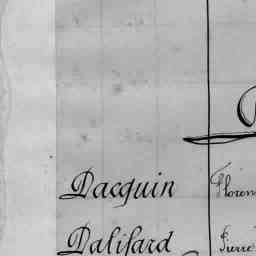 Dacquin Floren
Dalifard Pierre